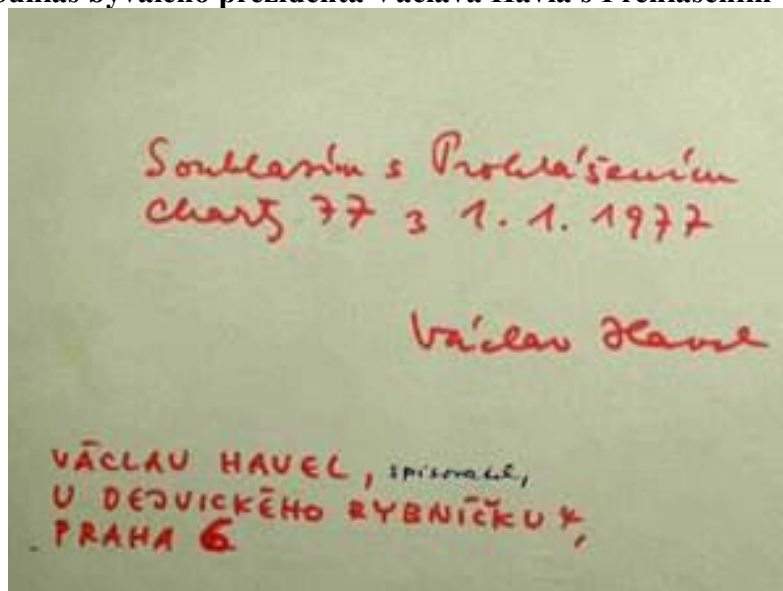 bývalého prezidenta Václava Havla s Prohlášením
Souhlasím s Prohlášením
Charty 77 z 1.1.1977
Václav Havel
VÁCLAV HAVEL, spisovatel,
U DEJVICKÉHO RYBNÍČKU 4,
PRAHA 6